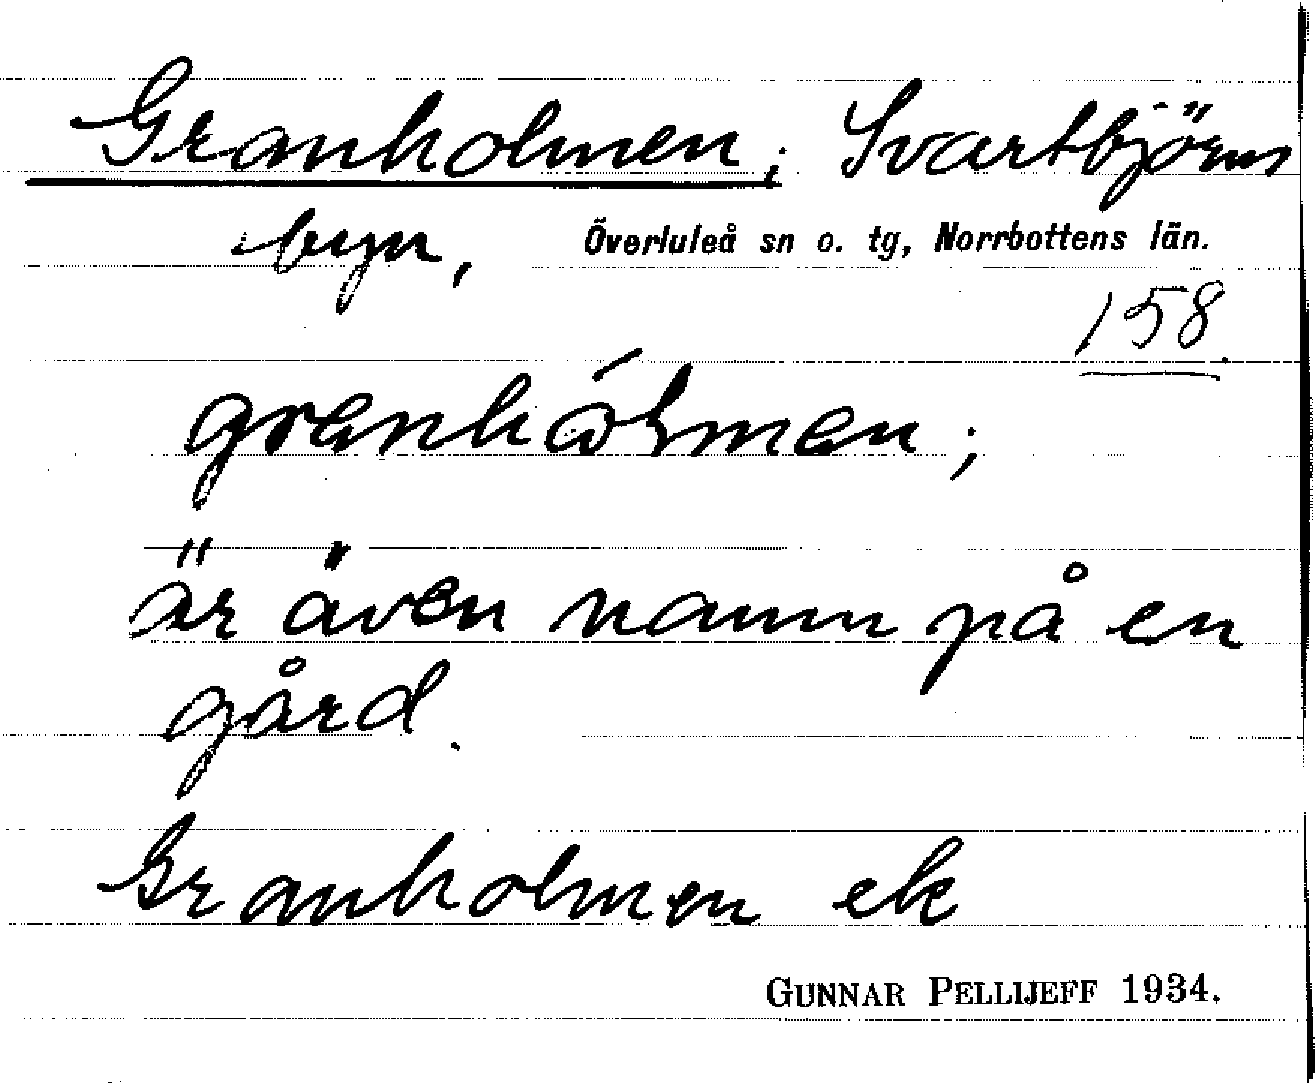 Granholmen; Svartbjörns
byn, Överluleå sn o. tg, Norrbottens län.
158.
granhólmen;
är även namn på en
gård.
Granholmen ek
GUNNAR PELLIJEFF 1934.